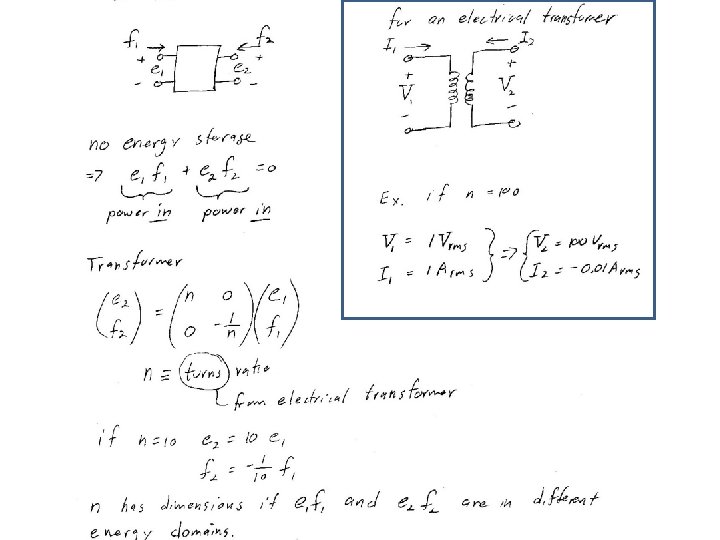 f₁ → ← f₂
+ e₁ - + e₂ -
no energy storage
=> e₁ f₁ + e₂ f₂ = 0
power in power in
Transformer
(e₂ f₂) = (n 0 0 -1/n)(e₁ f₁)
n ≡ turns ratio
from electrical transformer
if n=10 e₂ = 10 e₁
f₂ = -1/10 f₁
n has dimensions if e₁f₁ and e₂f₂ are in different
energy domains.
for an electrical transfomer
I₁ → ← I₂
+ V₁ - + V₂ -
Ex. if n = 100
V₁ = 1 Vrms } => { V₂ = 100 Vrms
I₁ = 1 Arms } { I₂ = -0.01 Arms